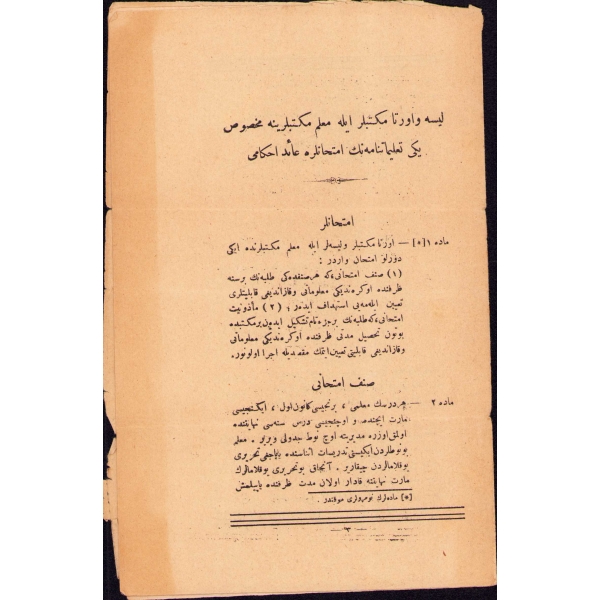 ليسه و اورتا مكتبلر ايله معلم مكتبلرينه مخصوص
يكى تعليماتنامه‌نك امتحانلره عائد احكامى
امتحانلر
ماده ١ [*] — اورتا مكتبلر وليسه‌لر ايله معلم مكتبلرنده ايكى
دورلو امتحان واردر :
(١) صنف امتحانى، كه هر صنفده‌كى طلبه‌نك بر سنه
ظرفنده اوكرنديكى معلوماتى وقازانديغى قابليتلرى
تعيين ايله‌مه‌يى استهداف ايدر ؛ (٢) مأذونيت
امتحانى، كه طلبه‌نك بر دوره تام تشكيل ايدن بر مكتبده
بوتون تحصيل مدتى ظرفنده اوكرنديكى معلوماتى
وقازانديغى قابليتى تعيين ايتمك مقصديله اجرا اولونور.
صنف امتحانى
ماده ٢ — هر درسك معلمى ، برنجيسى كانون اول ، ايكنجيسى
مارت ايچنده و اوچنجيسى درس سنه‌سى نهايتنده
اولمق اوزره مديريته اوچ نوط جدولى ويرر . معلم
بو نوطلردن ايكيسنى تدريسات اثناسنده ياپاجغى تحريرى
يوقلامالردن چيقارير . آنجاق بو تحريرى يوقلامالرك
مارت نهايتنه قادار اولان مدت ظرفنده ياپيلمش
[*] ماده‌لرك نومرولرى موقتدر .
— ٣ —